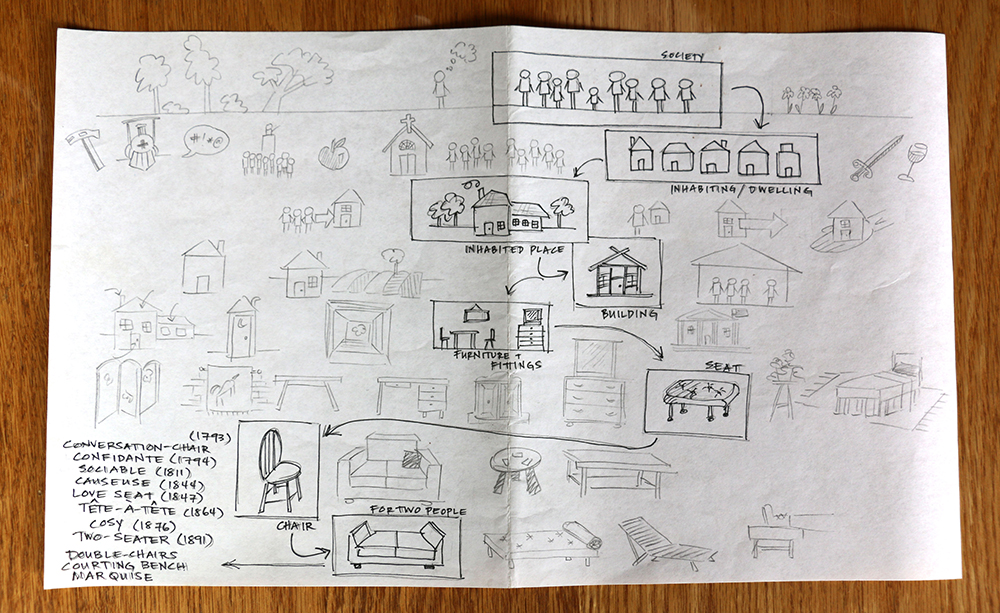 SOCIETY
#!@
INHABITING/DWELLING
INHABITED PLACE
BUILDING
FURNITURE +
FITTINGS
SEAT
(1793)
CONVERSATION-CHAIR
CONFIDANTE (1794)
SOCIABLE (1811)
CAUSEUSE (1844)
LOVE SEAT (1847)
TÊTE-À-TÊTE (1864)
COSY (1876)
TWO-SEATER (1891)
DOUBLE-CHAIRS
COURTING BENCH
MARQUISE
CHAIR
FOR TWO PEOPLE